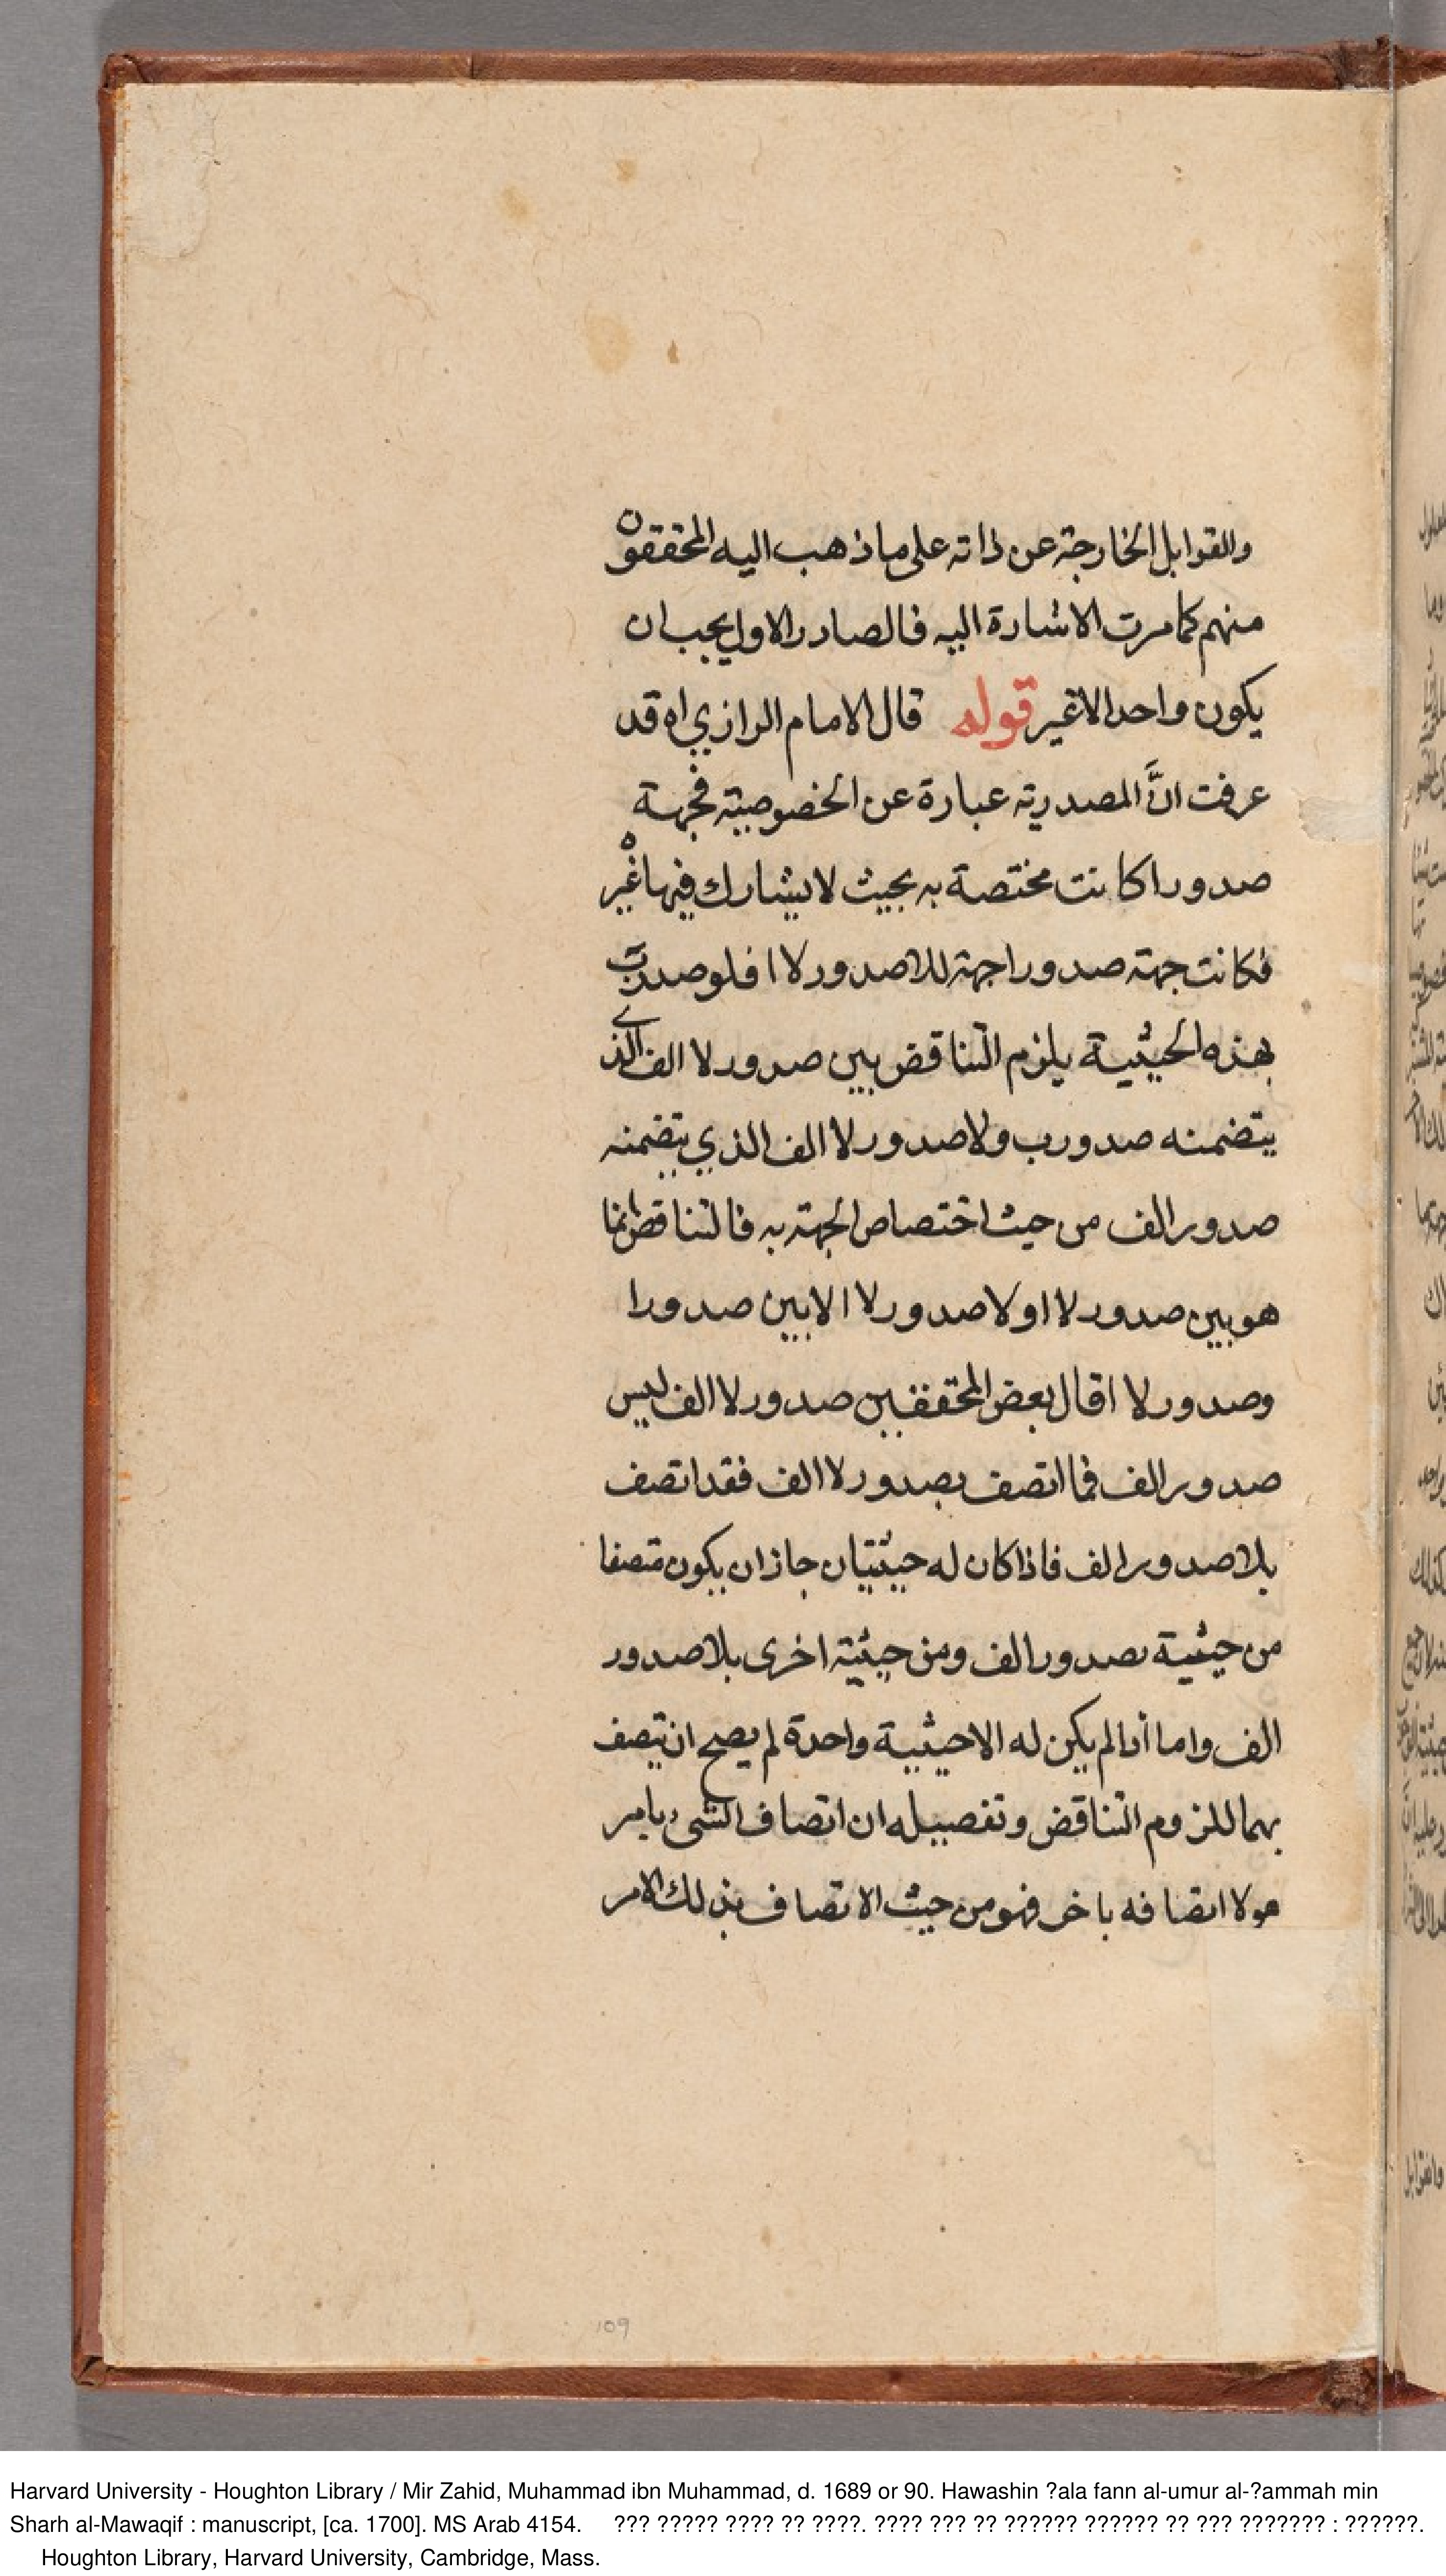 والقوابل الخارجة عن ذاته على ماذهب اليه المحققون
منهم كما مرت الاشارة اليه فالصادر الاول يجب ان
يكون واحدا لاغير قوله قال الامام الرازي اه قد
عرفت انَّ المصدرية عبارة عن الخصوصية فجهة
صدور ا كانت مختصة به بحيث لا يشارك فيها غيره
فكانت جهة صدور ا جهة للاصدور لا ا فلو صدر ب
بهذه الحيثية يلزم التناقض بين صدور لا الف الذي
يتضمنه صدور ب ولا صدور لا الف الذي يتضمنه
صدور الف من حيث اختصاص الجهة به فالتناقض انما
هو بين صدور لا ا ولا صدور لا ا لا بين صدور ا
وصدور لا ا قال بعض المحققين صدور لا الف ليس
صدور الف فما اتصف بصدور لا الف فقد اتصف
بلا صدور الف فاذا كان له حيثيتان جاز ان يكون متصفا
من حيثية بصدور الف ومن حيثية اخرى بلا صدور
الف واما اذا لم يكن له الا حيثية واحدة لم يصح ان يتصف
بهما للزوم التناقض وتفصيله ان اتصاف الشىء بامر
هو لا اتصافه باخر فهو من حيث الاتصاف بذلك الامر
109
Harvard University - Houghton Library / Mir Zahid, Muhammad ibn Muhammad, d. 1689 or 90. Hawashin ?ala fann al-umur al-?ammah min
Sharh al-Mawaqif : manuscript, [ca. 1700]. MS Arab 4154. ??? ????? ???? ?? ????. ???? ??? ?? ?????? ?????? ?? ??? ??????? : ??????.
Houghton Library, Harvard University, Cambridge, Mass.